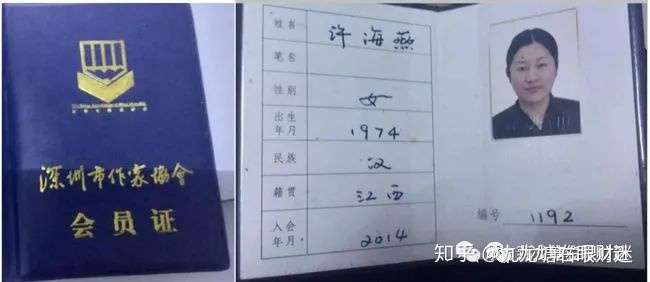 深圳市作家協會
会员证
姓名 许海燕
笔名
性别 女
出生年月 1974
民族 汉
籍贯 江西
入会年月 2014
编号 1192
知乎